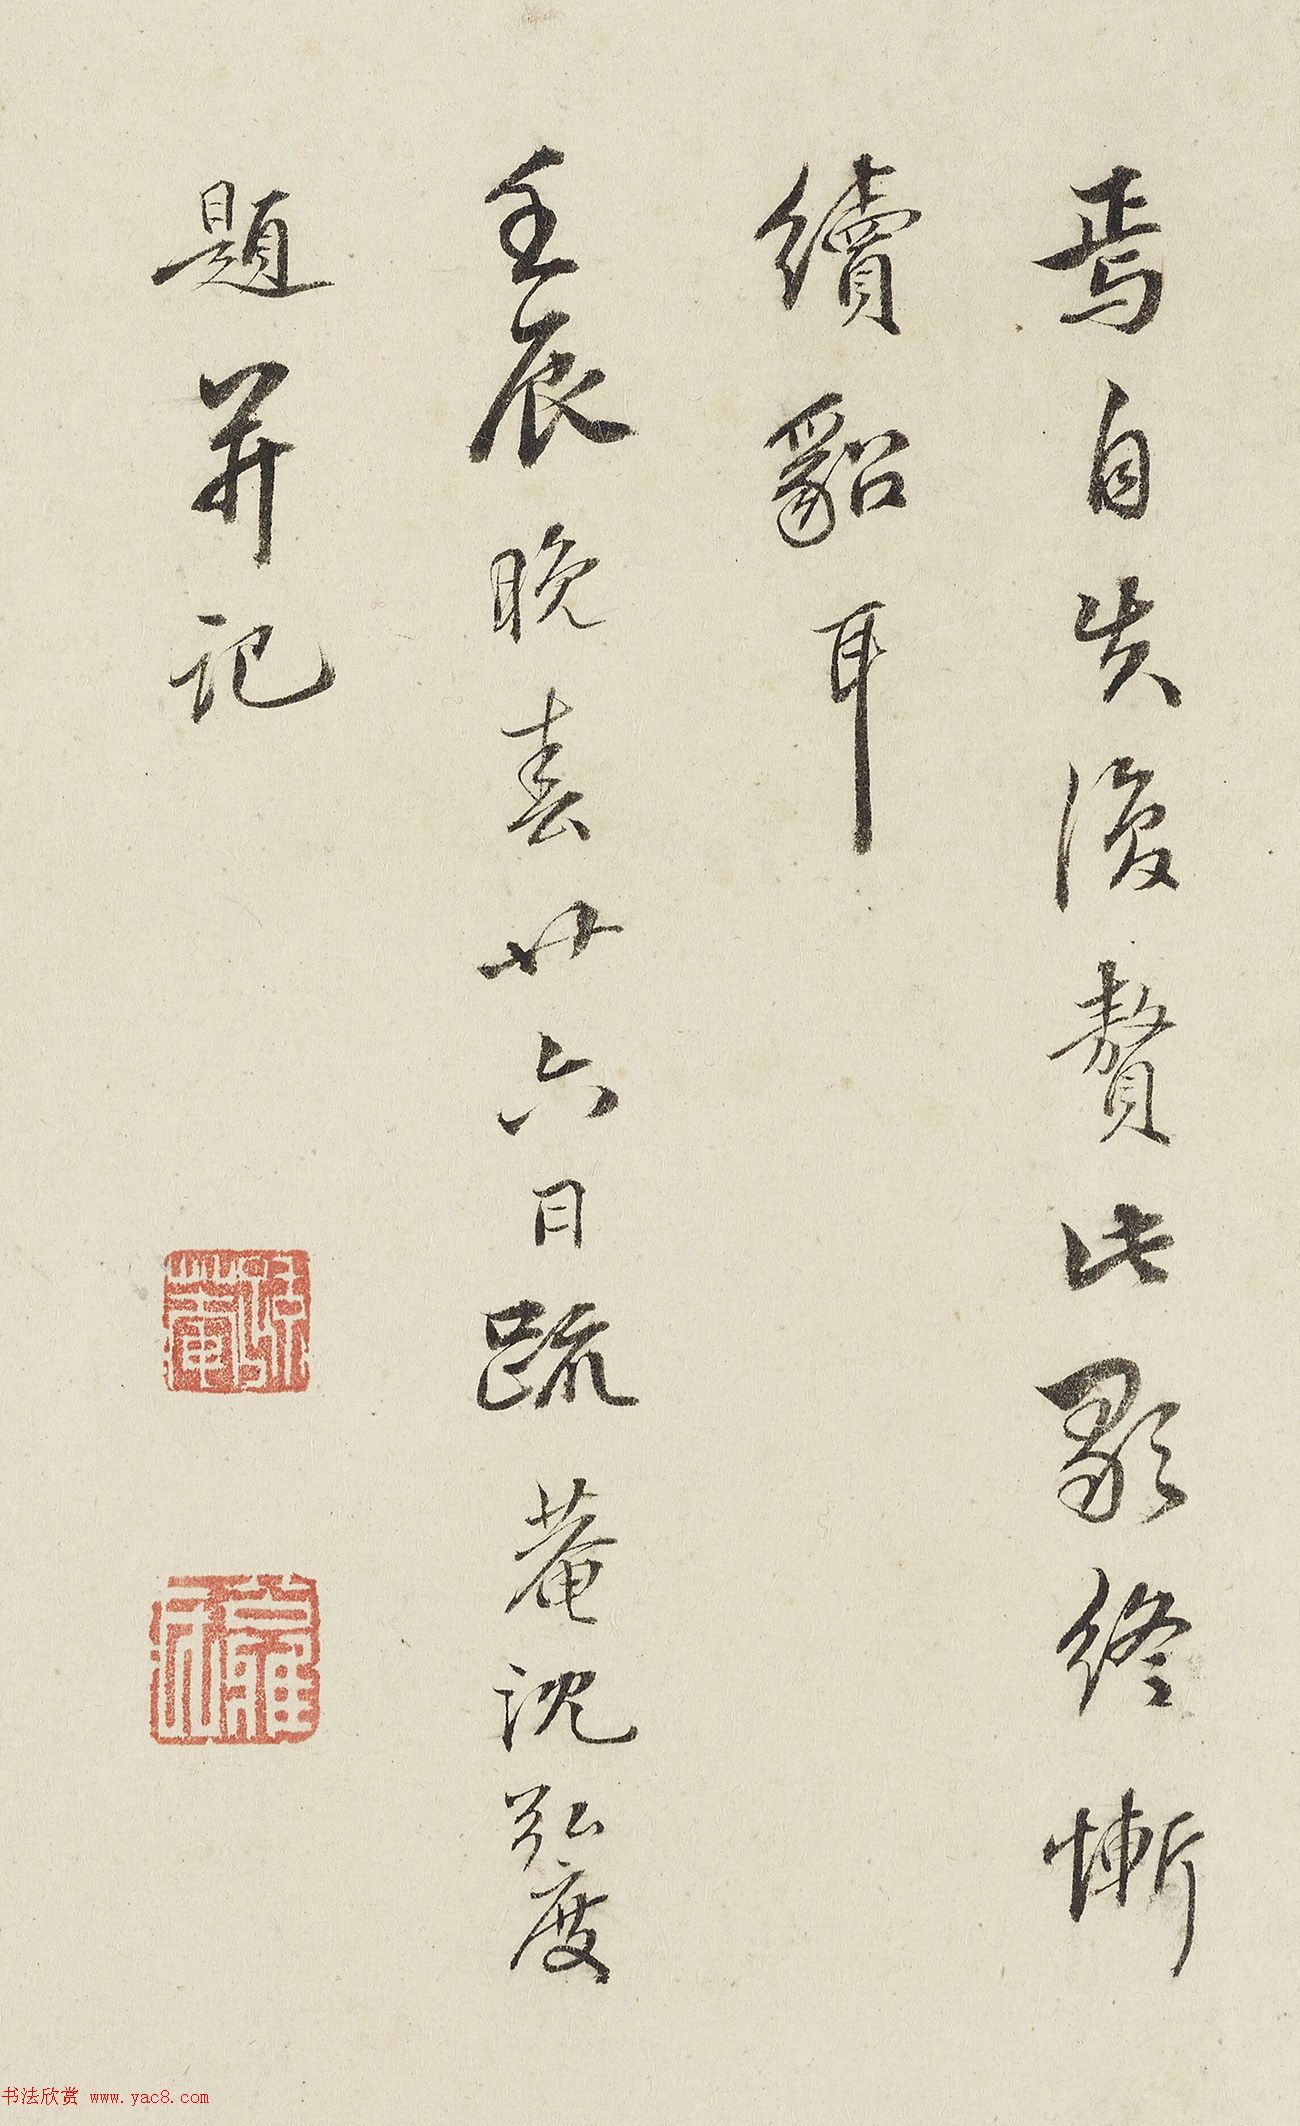 焉自失復贅此彖終慚
續貂耳
壬辰晚春廿六日疏菴沈弘度
題并記
书法欣赏 www.yac8.com